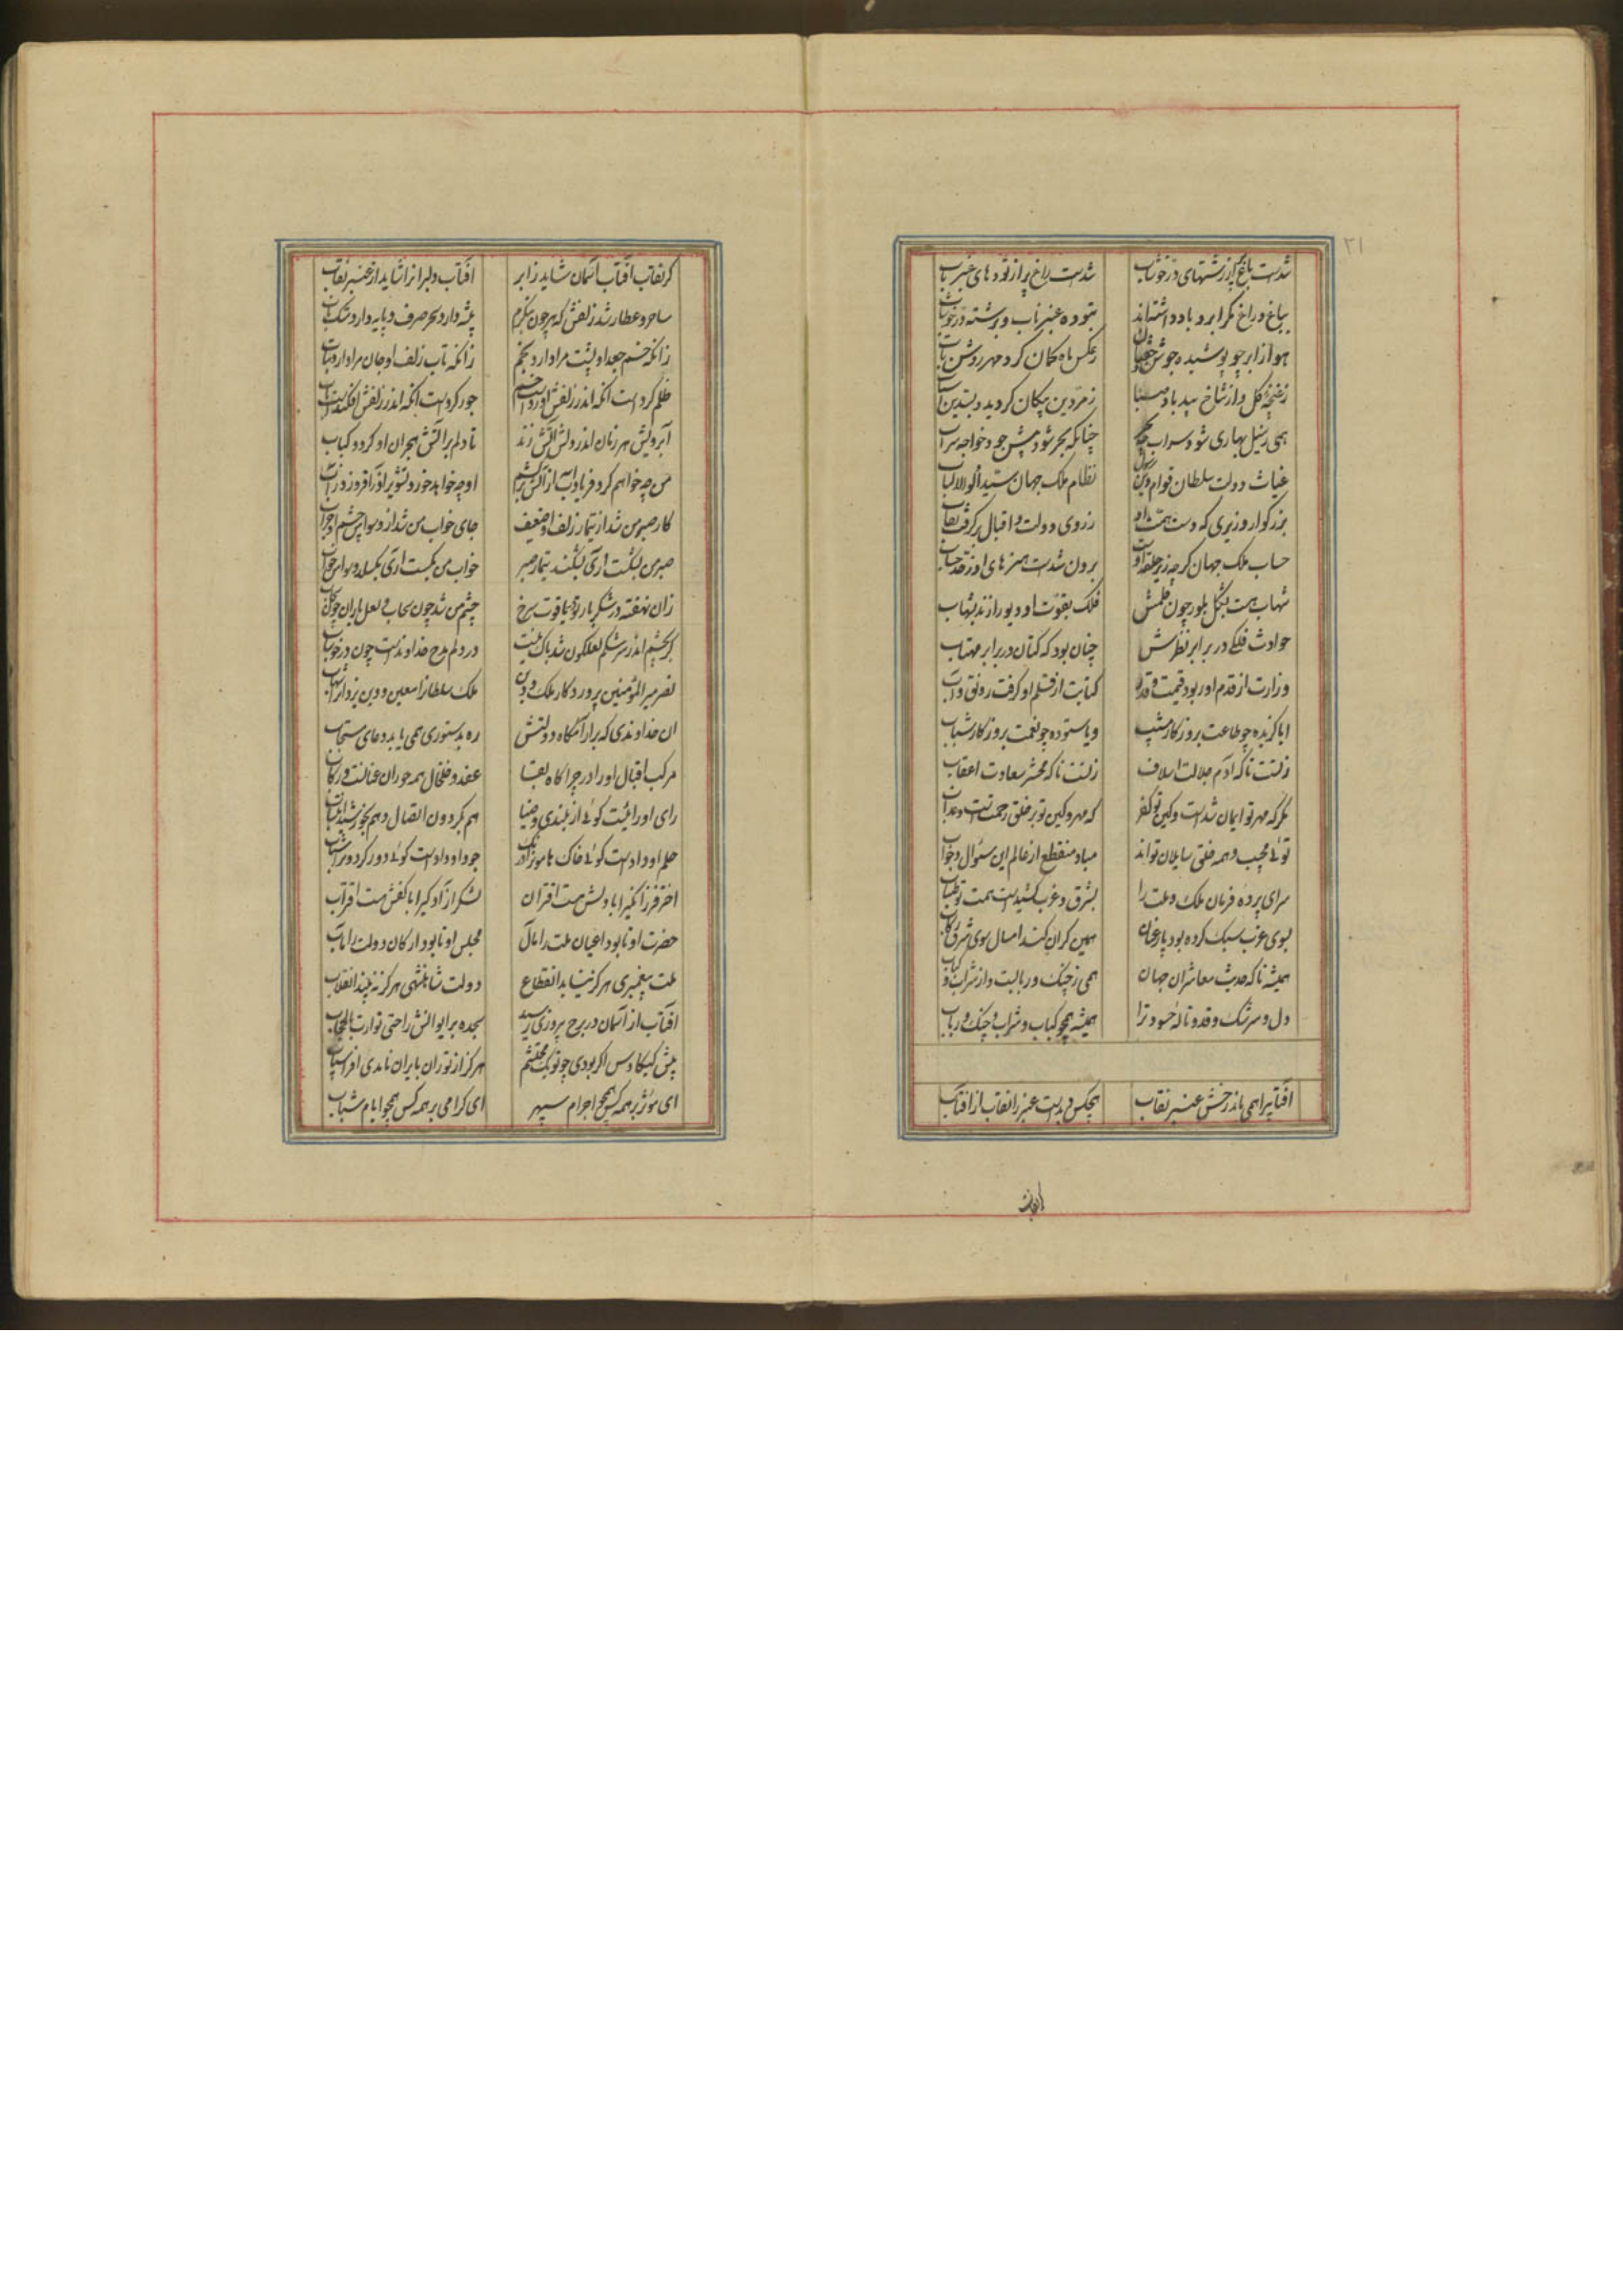 ۲۱
شدست باغ پر از رشتهای در خوشاب شدست راغ پر از توده های عنبر ناب
بباغ و راغ مگر ابر و باد داشته‌اند بتوده عنبر ناب و برشته در خوشاب
هوا ز ابر چو پوشیده جوشن و خفتان ز عکس ماه کمان کرد مهر روشن تاب
ز غنچه گل و از شاخ بید باد صبا زمردین پیکان کرد و بسدین
همی ز سیل بهاری شود سراب چو بحر چنانکه بحر شود پیش جود خواجه سراب
غیاث دولت سلطان قوام دین رسول نظام ملک جهان سید اولوالالباب
بزرگوار وزیری که دست همت او ز روی دولت و اقبال برگرفت نقاب
حساب ملک جهان گرچه زیر حلقه اوست برون شدست هنرهای او ز حد حساب
شهاب هست بشکل بلور چون قلمش فلک بقوت او دیو را زند بشهاب
حوادث فلکی در برابر نظرش چنان بود که کتان در برابر مهتاب
وزارت از قدم او ربود قیمت و قدر کتابت از قلم او گرفت رونق و آب
ایا گزیده چو طاعت بروزگار مشیب و یا ستوده چو نعمت بروزگار شباب
ز تست تا که آدم جلالت اسلاف ز تست تا که محشر سعادت اعقاب
مگر که مهر تو ایمان شدست و کین تو کفر که مهر و کین تو بر خلق رحمتست و عذاب
توئی مجیب و همه خلق سایلان تواند مباد منقطع از عالم این سئوال و جواب
سرای پرده فرمان ملک و ملت را بشرق و غرب کشیدست همت تو طناب
بسوی غرب سبک کرده بود پار عنان همین گران کند امسال سوی شرق رکاب
همیشه تا که حدیث معاشران جهان همی ز چنگ و ربابست و از شراب و کباب
دل و سرشک و قد و ناله حسود ترا همیشه همچو کباب و شراب و چنگ و رباب
آفتابیرا همی ماند رخش عنبر نقاب هیچکس دیدست عنبر را نقاب از آفتاب
گر نقاب آفتاب آسمان شاید ز ابر آفتاب دلبرانرا شاید از عنبر نقاب
ساحر و عطار شد زلفش که هرچون بنگرم پیشه دارد سحر صرف و پایه دارد مشک ناب
زانکه خم جعد او پشت مرا دارد بخم زانکه تاب زلف او جان مرا دارد بتاب
ظلم کردست آنکه اندر زلفش آوردست خم جور کردست آنکه اندر زلفش افکندست تاب
آب رویش هر زمان اندر دلش آتش زند تا دلم بر آتش هجران او گردد کباب
من چه خواهم کرد فریادست از آتش او چه خواهد خورد تشویر
کار صبر من شد از تیمار زلف او ضعیف جای خواب من شد از وسواس چشم او خراب
صبر من بشکست آری بشکند تیمار صبر خواب من بگسست آری بگسلد وسواس خواب
زان نهفته در شکر بار تو یاقوت سرخ چشم من شد چون سحاب و لعل باران چون
گر بچشم اندر سرشکم لعلگون شد باک نیست در دلم مدح خداوندست چون در خوشاب
نصر میر المؤمنین پروردگار ملک و دین ملک سلطانرا معین و دین یزدانرا شهاب
آن خداوندی که بر آرامگاه دولتش ره بدستوری همی یابد دعای مستجاب
مرکب اقبال او را در چراگاه بقا عقد و خلخال همه حوران عنانست و رکاب
رای او را نیست گوئی از بلندی و ضیا هم بگردون اتصال و هم بخورشید انتساب
حلم او دادست گوئی خاک هامون را درنگ جود او دادست گوئی دور گردون را شتاب
اختر فرزانگیرا با دلش هست اقتران لشکر آزادگیرا با کفش هست اقتراب
حضرت او تا بود اعیان ملت را مآل مجلس او تا بود ارکان دولت را مآب
ملت پیغمبری هرگز نیابد انقطاع دولت شاهنشهی هرگز نبیند انقلاب
آفتاب از آسمان در برج پیروزی رسید سجده بر ایوانش را حتی توارت بالحجاب
پیش کیکاوس اگر بودی چو تو یک محتشم هرگز از توران بایران نامدی افراسیاب
ای مؤثر بر همه کس همچو اجرام سپهر ای گرامی بر همه کس همچو ایام شباب